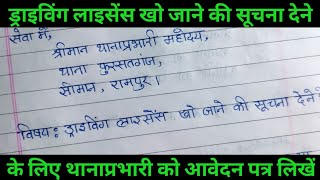 ड्राइविंग लाइसेंस खो जाने की सूचना देने
सेवा में,
श्रीमान थानाप्रभारी महोदय,
थाना फुरसतगंज,
सीमान, रामपुर।
विषय: ड्राइविंग लाइसेंस खो जाने की सूचना देने
के लिए थानाप्रभारी को आवेदन पत्र लिखें